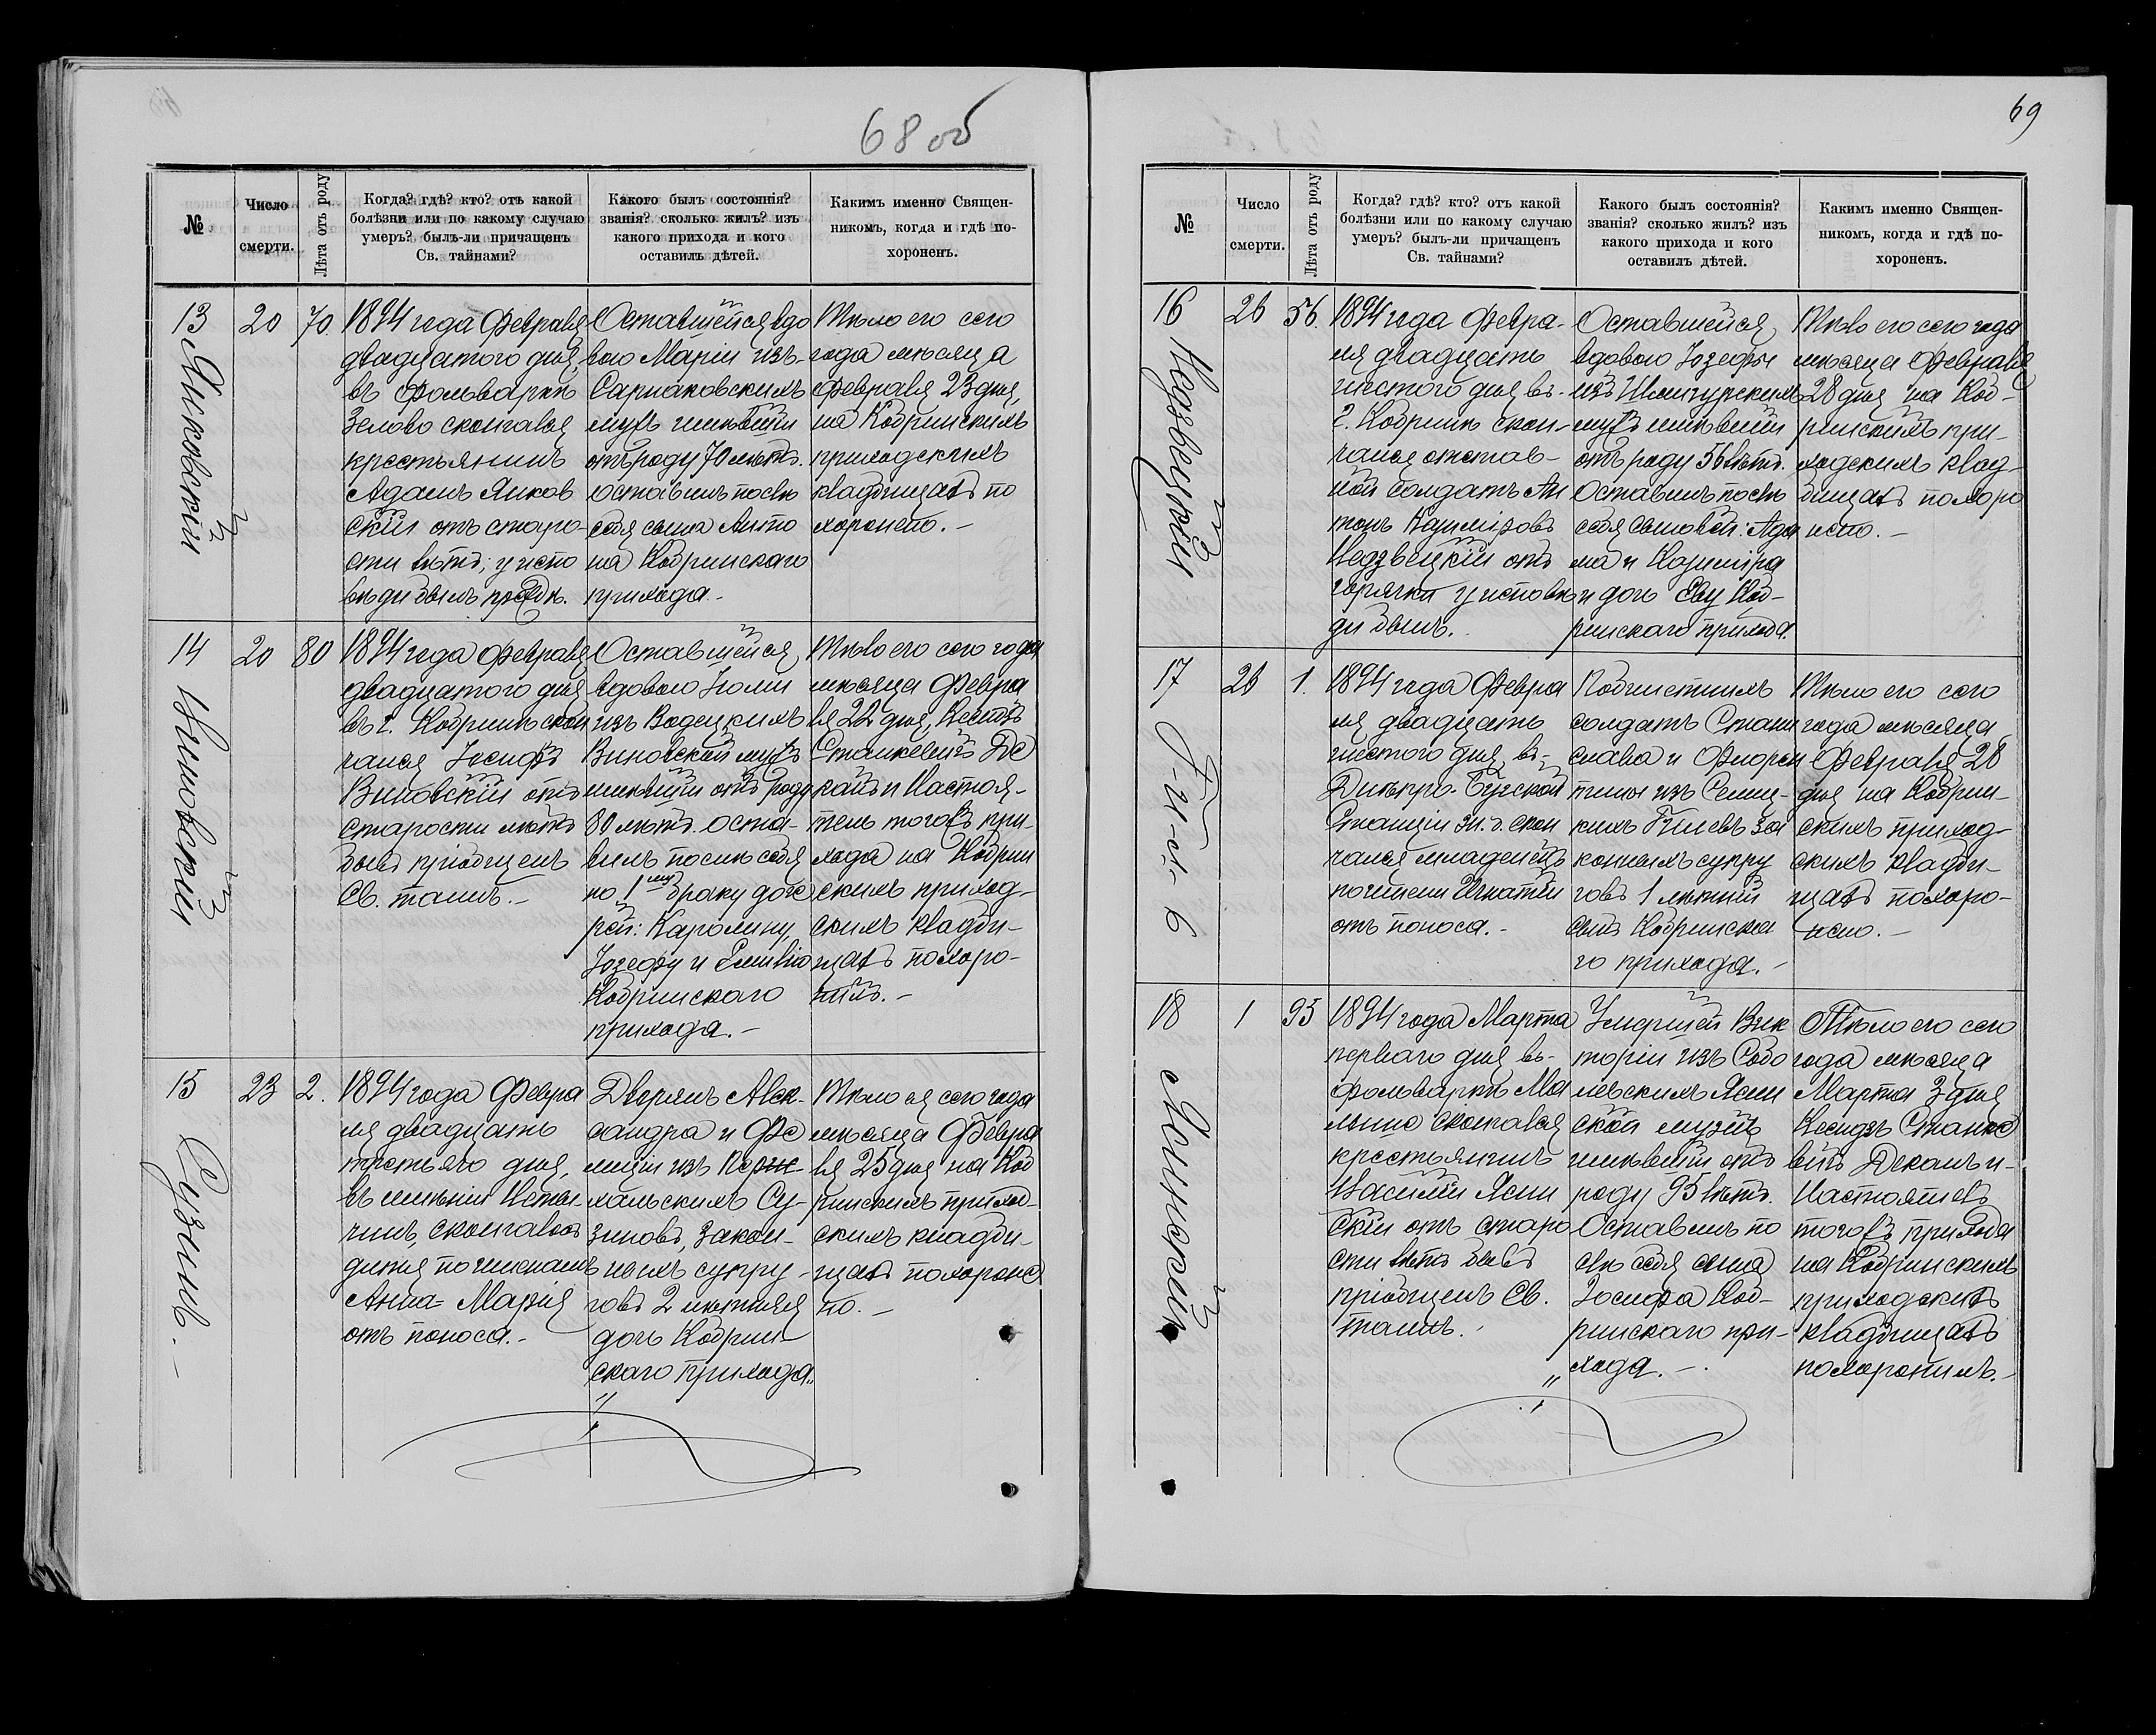 68 об
№
Число смерти.
Лѣта отъ роду
Когда? гдѣ? кто? отъ какой
болѣзни или по какому случаю
умеръ? былъ-ли причащенъ
Св. тайнами?
Какого былъ состоянія?
званія? сколько жилъ? изъ
какого прихода и кого
оставилъ дѣтей.
Какимъ именно Священ-
никомъ, когда и гдѣ по-
хороненъ.
13
Янковскій
20
70.
1894 года Февраля
двадцатого дня,
въ фольваркѣ
Зелово скончался
крестьянинъ
Адамъ Янков
скій отъ старо-
сти лѣтъ; у испо
вѣди былъ
Оставшейся вдо
вою Маріи изъ
Сарнаковскихъ
мужъ имѣвшій
отъ роду 70 лѣтъ.
оставилъ послѣ
себя сына Анто
на Кобринскаго
прихода.-
Тѣло его сего
года мѣсяца
Февраля 23 дня,
на Кобринскихъ
приходскихъ
кладбищахъ по
хоронено.-
14
Виновскій
20
80
1894 года Февраля
двадцатого дня
въ г. Кобринѣ скон
чался Іосифъ
Виновскій отъ
старости лѣтъ
бывъ пріобщенъ
Св. таинъ.-
Оставшейся
вдовою Юліи
изъ Водецкихъ
Виновской мужъ
имѣвшій отъ роду
80 лѣтъ. оста-
вилъ послѣ себя
по 1му браку доче
рей: Каролину,
Іозефу и Емилію
Кобринскаго
прихода.-
Тѣло его сего года
мѣсяца Февра
ля 22 дня, Ксендзъ
Станкевичъ Де
канъ и Настоя-
тель тогожъ при-
хода на Кобрин
скихъ приход-
скихъ кладби-
щахъ похоро-
нилъ.-
15
Сузинъ.-
23
2.
1894 года Февра
ля двадцать
третьяго дня,
въ имѣніи
скончалось
дитя по имени
Анна-Марія
отъ поноса.-
Дворянъ Алек-
сандра и Фе
лиціи изъ
Су-
зиновъ, закон-
ныхъ супру-
говъ 2 лѣтняя
дочь Кобрин
скаго прихода.
Тѣло ея сего года
мѣсяца Февра
ля 25 дня на Коб
ринскихъ приход-
скихъ кладби-
щахъ похороне
но.-
69
№
Число смерти.
Лѣта отъ роду
Когда? гдѣ? кто? отъ какой
болѣзни или по какому случаю
умеръ? былъ-ли причащенъ
Св. тайнами?
Какого былъ состоянія?
званія? сколько жилъ? изъ
какого прихода и кого
оставилъ дѣтей.
Какимъ именно Священ-
никомъ, когда и гдѣ по-
хороненъ.
16
Недзвецкій
26
56.
1894 года Февра-
ля двадцать
шестого дня въ-
г. Кобринѣ скон-
чался отстав-
ной солдатъ Ан
тонъ Казиміровъ
Недзвецкій отъ
горячки у исповѣ
ди былъ.
Оставшейся
вдовою Іозефы
изъ Шлигурскихъ
мужъ имѣвшій
отъ роду 56 лѣтъ.
Оставилъ послѣ
себя сыновей: Ада
ма и Казиміра
и дочь Еву Коб-
ринскаго прихода.
Тѣло его сего года
мѣсяца Февраля
28 дня на Коб-
ринскихъ при-
ходскихъ клад-
бищахъ похоро
нено.-
17
26
1.
1894 года Февра
ля двадцать
шестого дня, въ
Днѣпро-Бугской
Станціи ж. д. скон
чался младенецъ
по имени Игнатій
отъ поноса.-
солдатъ Стани
слава и Флорен
тины изъ
за
конныхъ супру
говъ 1 лѣтній
сынъ Кобринска
го прихода.-
Тѣло его сего
года мѣсяца
Февраля 28
дня на Кобрин-
скихъ приход-
скихъ кладби-
щахъ похоро-
нено.-
18
Ясинскій
1
95
1894 года Марта
перваго дня въ-
фольваркѣ
скончался
крестьянинъ
Ясин
скій отъ старо
сти лѣтъ бывъ
пріобщенъ Св.
таинъ.
Умершей Вик
торіи изъ Собо
левскихъ Ясин
ской мужъ
имѣвшій отъ
роду 95 лѣтъ.
Оставилъ по
слѣ себя сына
Іосифа Коб-
ринскаго при-
хода.-
Тѣло его сего
года мѣсяца
Марта 3 дня
Ксендзъ Станке
вичъ Деканъ и-
Настоятель
тогожъ прихода
на Кобринскихъ
приходскихъ
кладбищахъ
похоронилъ.-